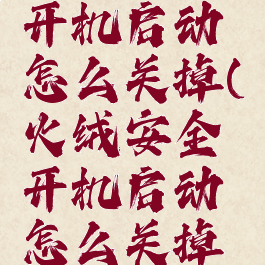 开机启动
怎么关掉(
火绒安全
开机启动
怎么关掉